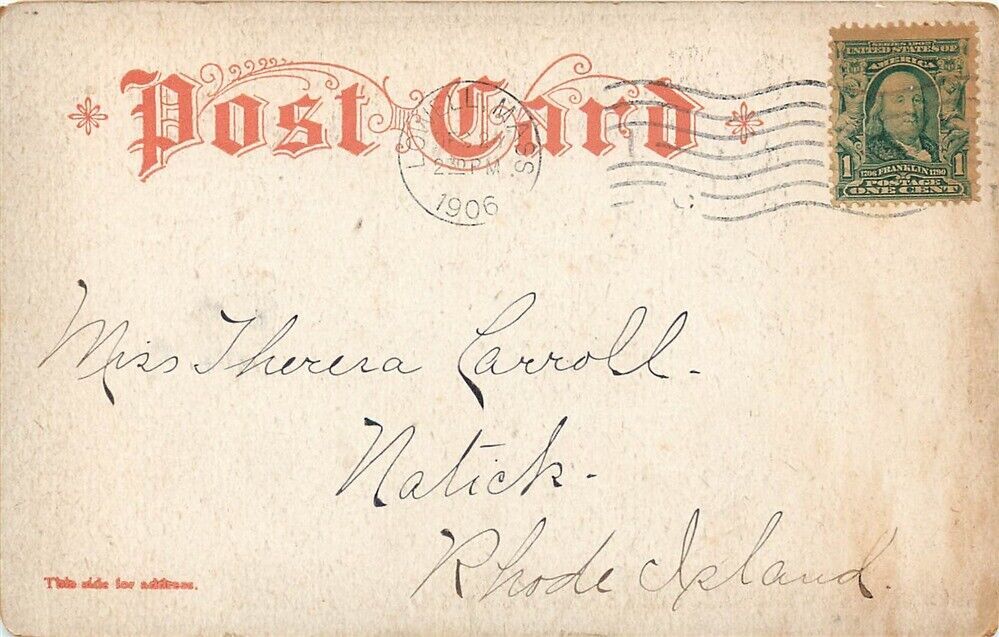 Post Card
LOWELL MASS
2 30 PM
1906
SERIES 1902
UNITED STATES OF
AMERICA
1 1706 FRANKLIN 1790 1
POSTAGE
ONE CENT
Miss Theresa Carroll.
Natick.
Rhode Island.
This side for address.